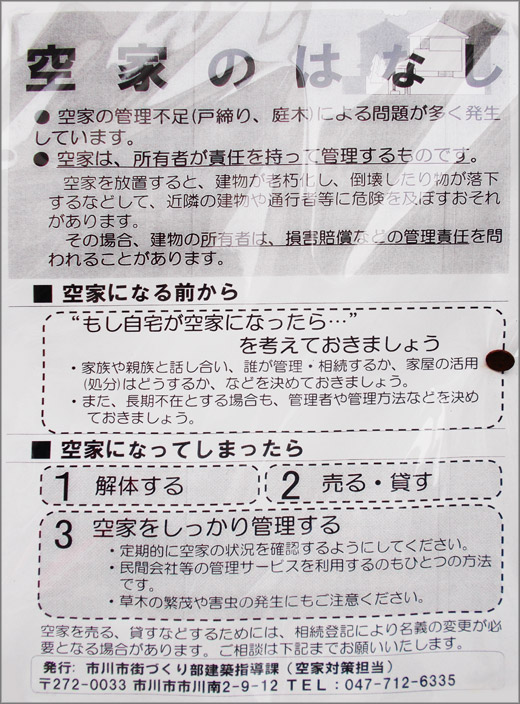 空家のはなし
● 空家の管理不足(戸締り、庭木)による問題が多く発生
しています。
● 空家は、所有者が責任を持って管理するものです。
空家を放置すると、建物が老朽化し、倒壊したり物が落下
するなどして、近隣の建物や通行者等に危険を及ぼすおそれ
があります。
その場合、建物の所有者は、損害賠償などの管理責任を問
われることがあります。
■ 空家になる前から
“もし自宅が空家になったら…”
を考えておきましょう
・家族や親族と話し合い、誰が管理・相続するか、家屋の活用
(処分)はどうするか、などを決めておきましょう。
・また、長期不在とする場合も、管理者や管理方法などを決め
ておきましょう。
■ 空家になってしまったら
1 解体する
2 売る・貸す
3 空家をしっかり管理する
・定期的に空家の状況を確認するようにしてください。
・民間会社等の管理サービスを利用するのもひとつの方法
です。
・草木の繁茂や害虫の発生にもご注意ください。
空家を売る、貸すなどするためには、相続登記により名義の変更が必
要となる場合があります。ご相談は下記までお願いいたします。
発行: 市川市街づくり部建築指導課(空家対策担当)
〒272-0033 市川市市川南2-9-12 TEL:047-712-6335